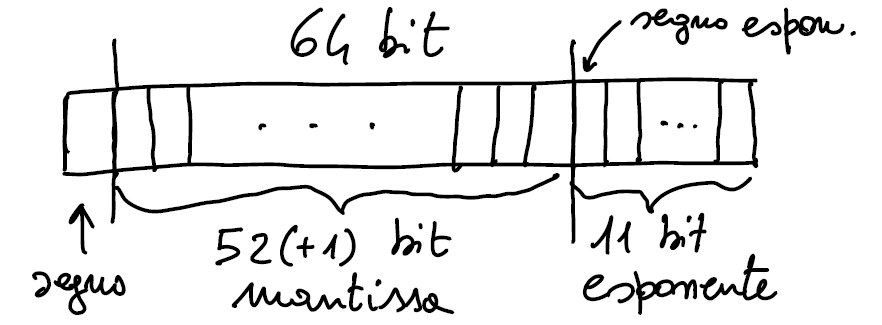 64 bit
segno espon.
. . .
...
segno
52(+1) bit
mantissa
11 bit
esponente